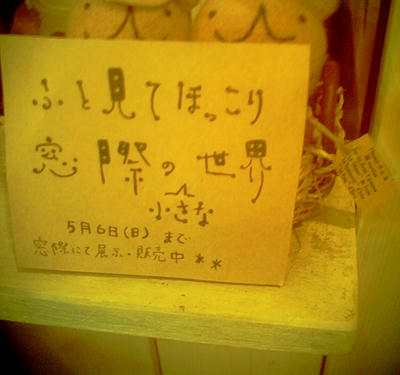 ふと見てほっこり
窓際の世界
小さな
5月6日(日)まで
窓際にて展示・販売中 **